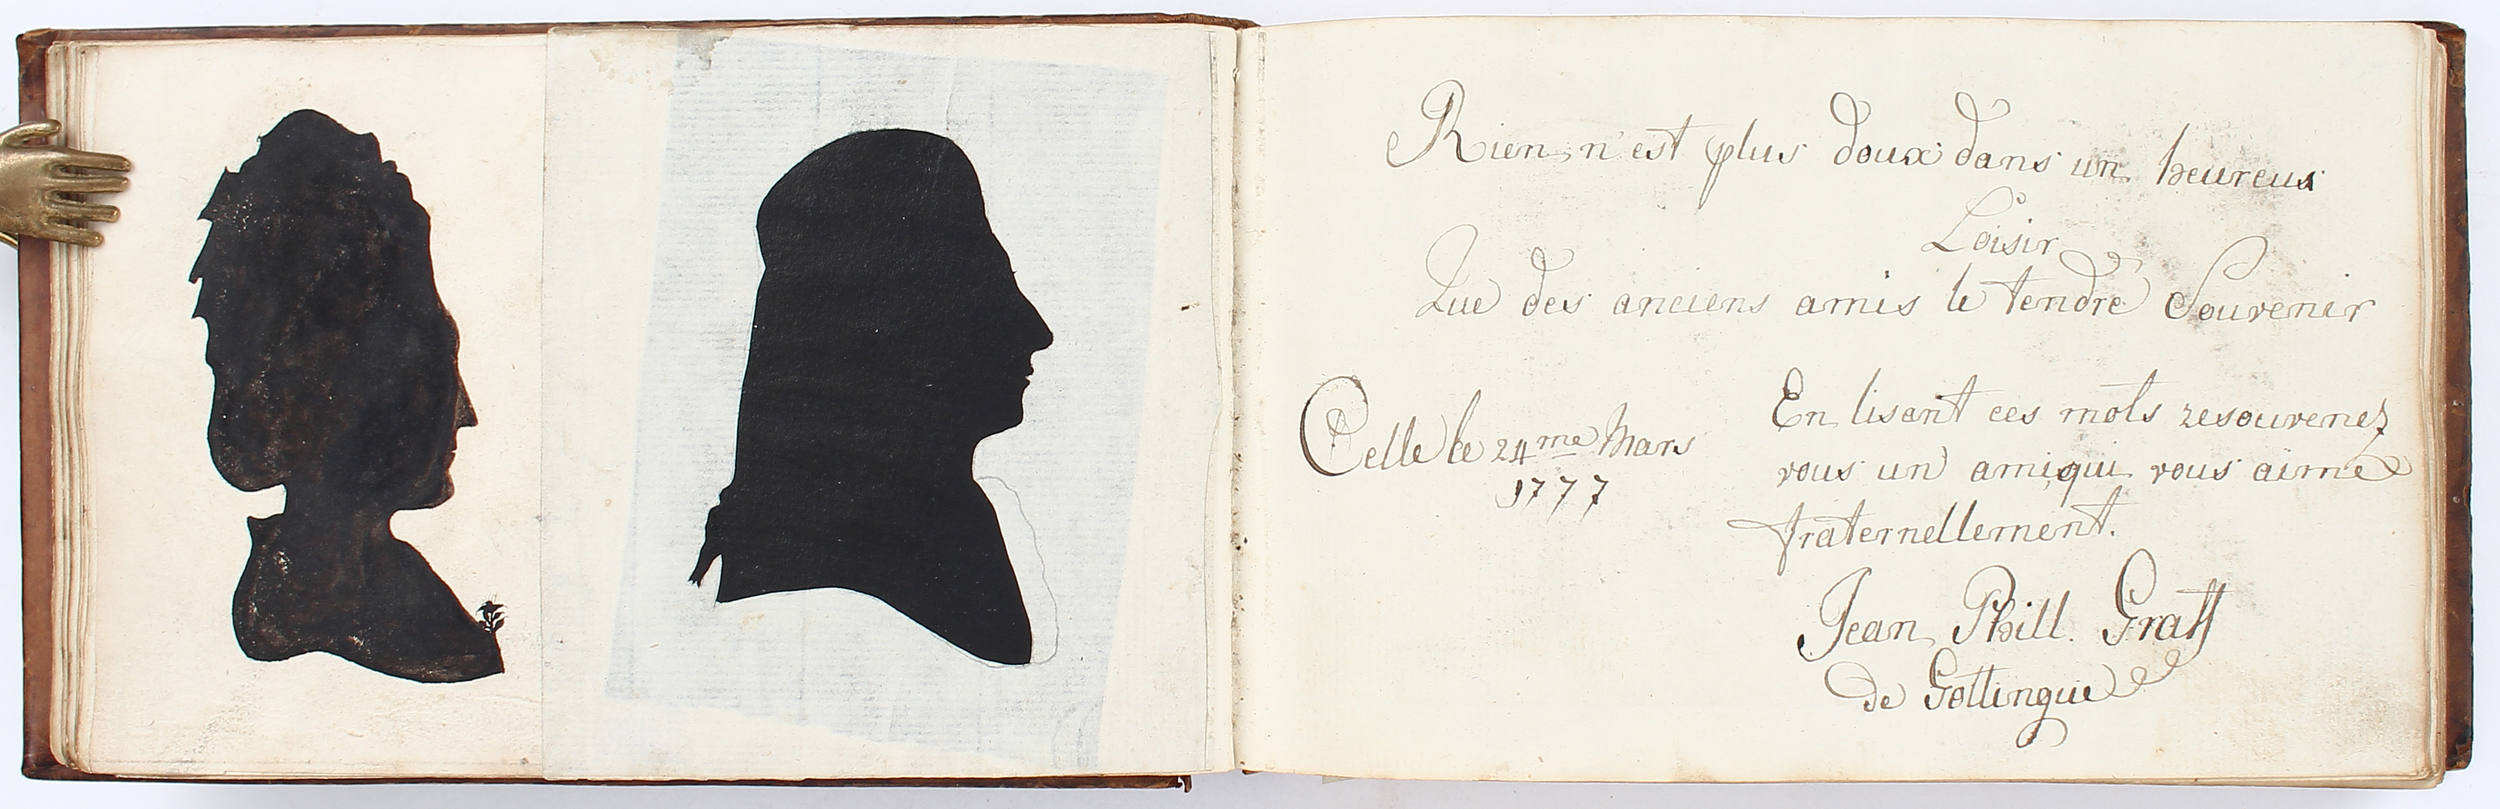 Rien n'est plus doux dans un heureux
Loisir
Que des anciens amis le tendre Souvenir
En lisant ces mots resouvenez
Celle le 24me Mars
vous un ami, qui vous aime
1777
fraternellement.
Jean Phill. Graff
de Gottingue